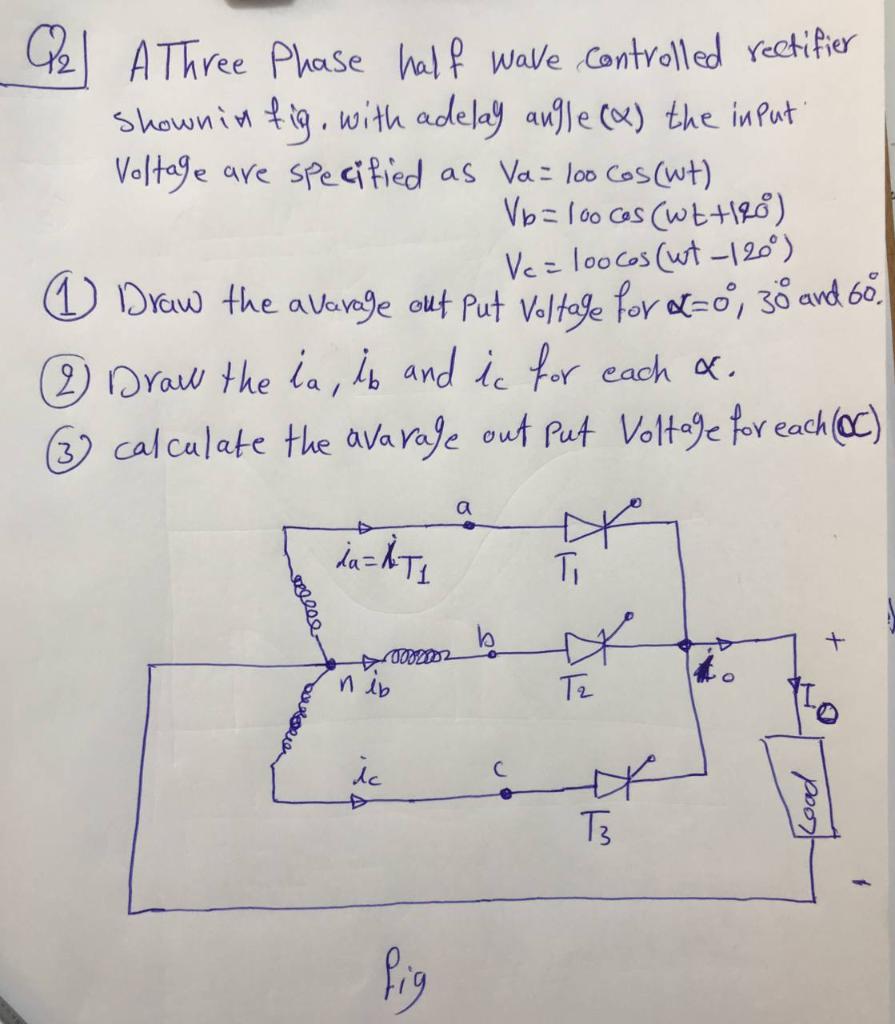 Q2 A Three Phase half wave controlled rectifier
shown in fig. with a delay angle (α) the input
Voltage are specified as Va = 100 cos(wt)
Vb = 100 cos (wt+120°)
Vc = 100 cos (wt -120°)
① Draw the avarage out put Voltage for α=0°, 30° and 60°.
② Draw the ia, ib and ic for each α.
③ calculate the avarage out put Voltage for each (α)
a
ia = iT1
T1
b
+
n ib
T2
io
Io
ic
c
Load
T3
-
fig